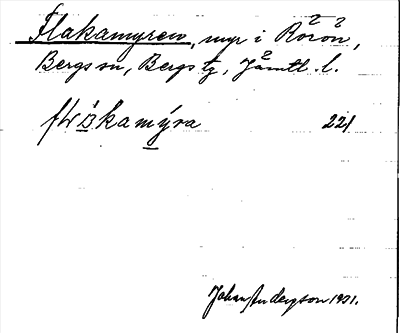 Flakamyren, myr i Rörön,
Bergs sn, Bergs tg, Jämtl. l.
221
Johan Anderzson 1921.